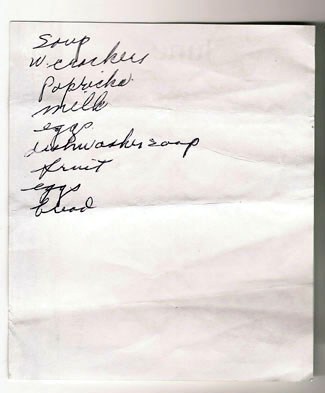 Soup
W. crackers
Papricka
milk
eggs
dishwasher soap
fruit
eggs
bread